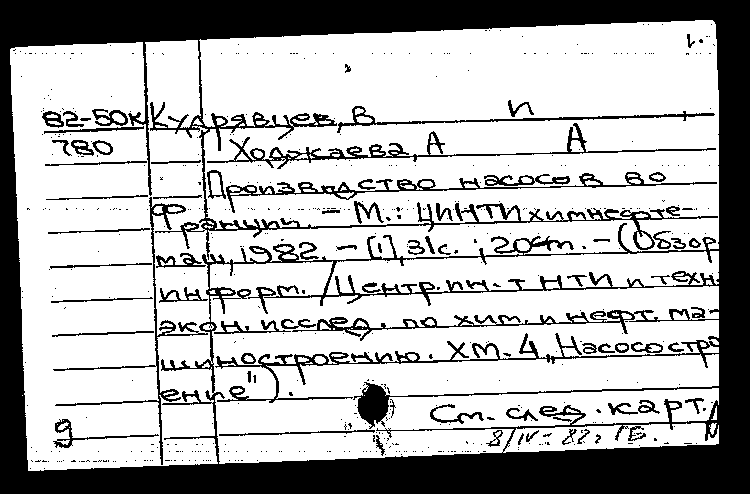 1.
82-50к Кудрявцев, В И
780 Ходжаева, А А
Производство насосов во
Франции. - М.: ЦИНТИхимнефте-
маш, 1982. - [1], 31с. ; 20см. - (Обзор.
информ. / Центр. ин-т НТИ и техн.-
экон. исслед. по хим. и нефт. ма-
шиностроению. ХМ-4 „Насосостро
ение").
См. след. карт.
9 8/IV-82г